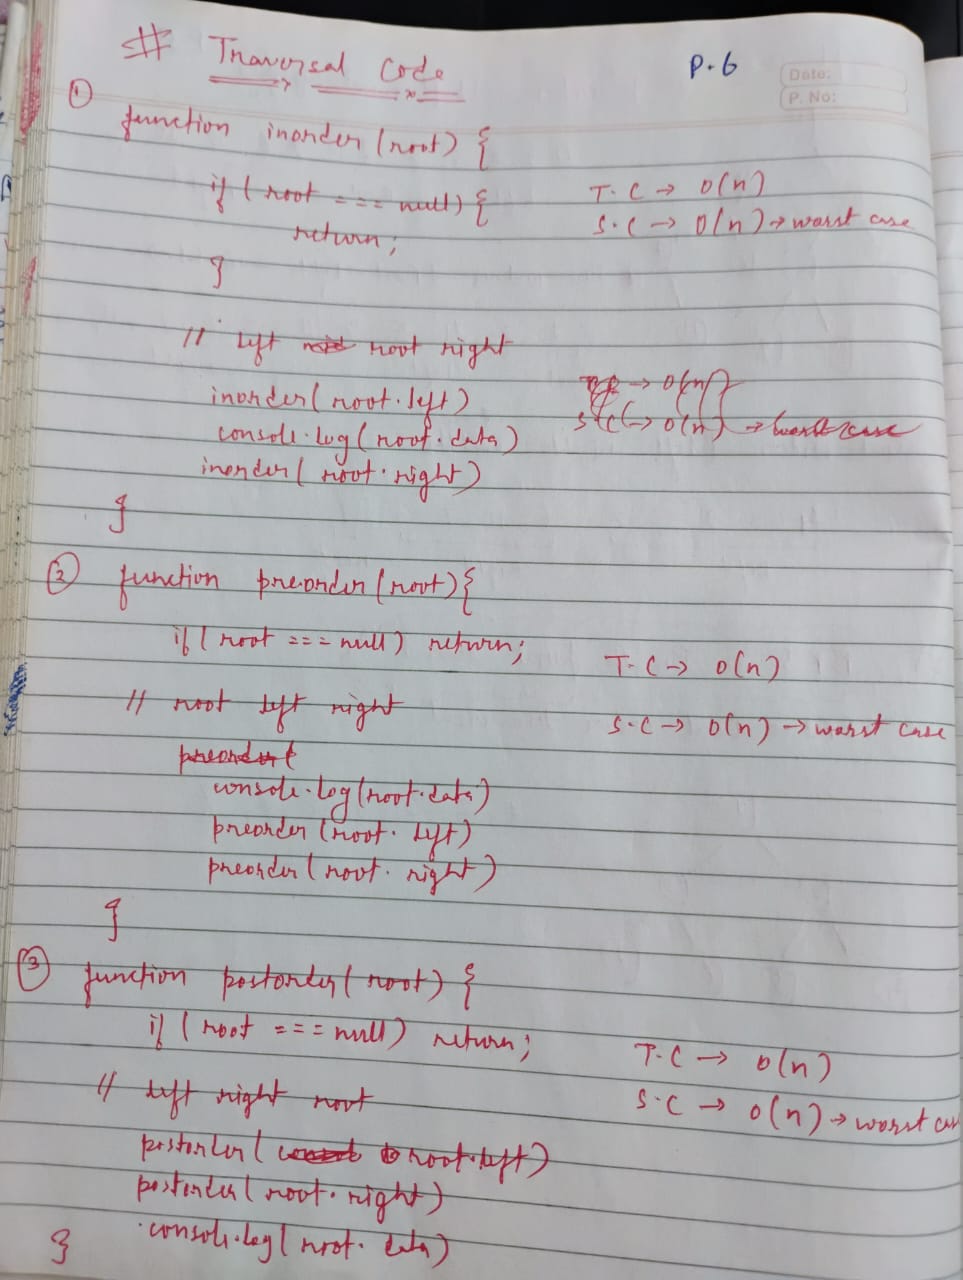 # Traversal Code
P.6
Date:
P. No:
① function inorder (root) {
if (root === null) {
return;
}
T.C → O(n)
S.C → O(n) → worst case
// left root right
inorder( root.left)
console.log( root.data)
inorder( root.right)
}
S.C → O(n) → worst case
② function preorder (root) {
if ( root === null) return;
T.C → O(n)
// root left right
S.C → O(n) → worst case
preorder (
console.log(root.data)
preorder (root. left)
preorder ( root. right)
}
③ function postorder( root) {
if ( root === null) return;
T.C → O(n)
// left right root
S.C → O(n) → worst cas
postorder ( root.left)
postorder ( root.right)
console.log( root. data)
}